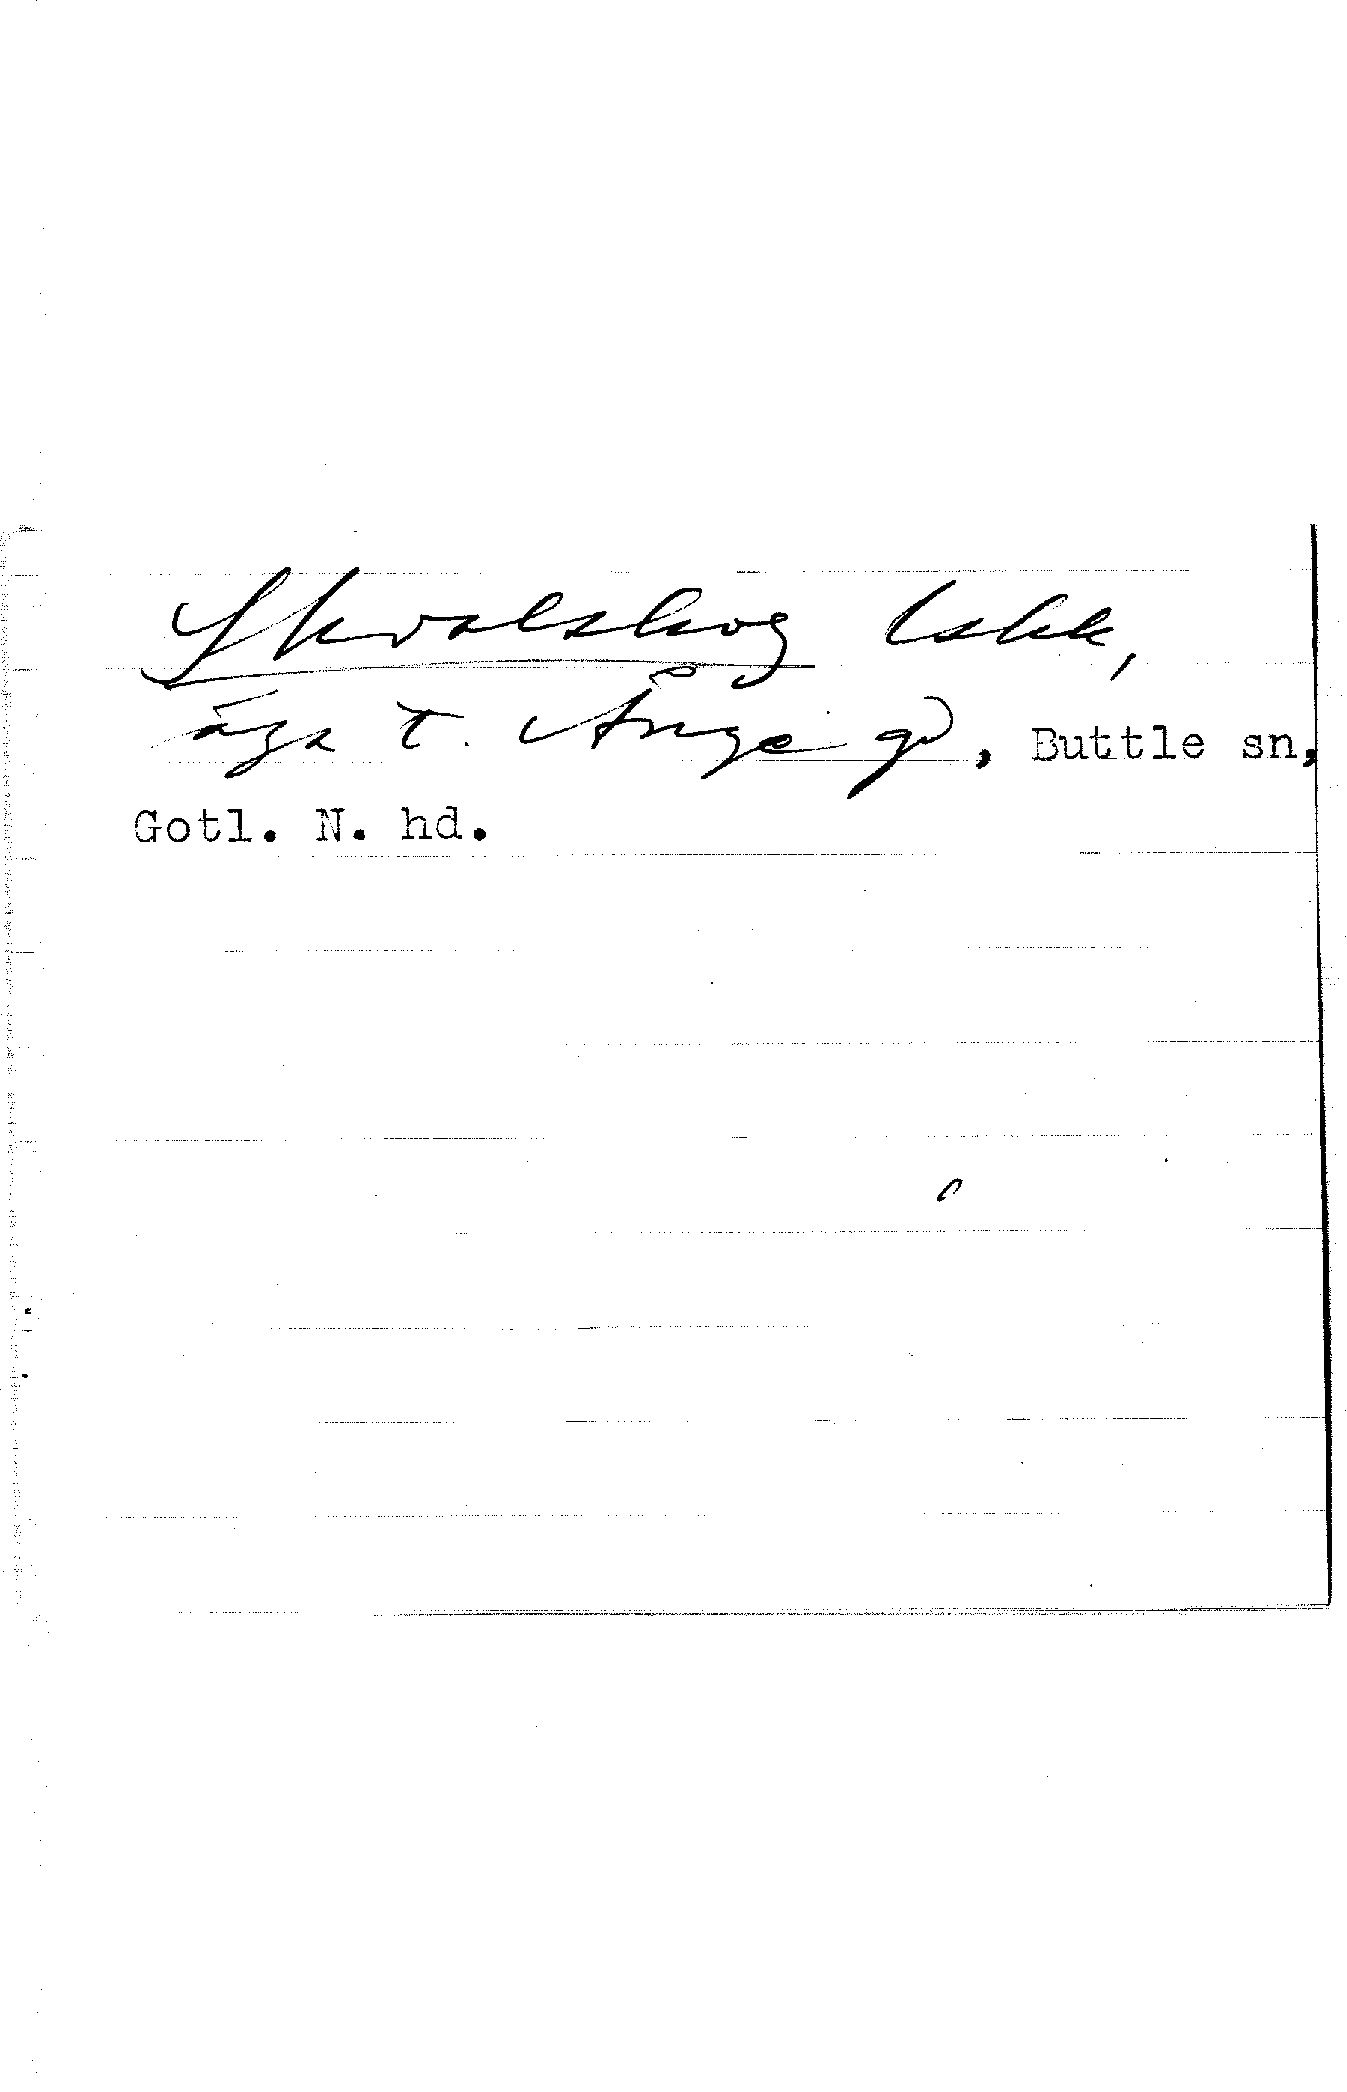 Skvalskog lskk,
äga t. Ånge gd, Buttle sn,
Gotl. N. hd.